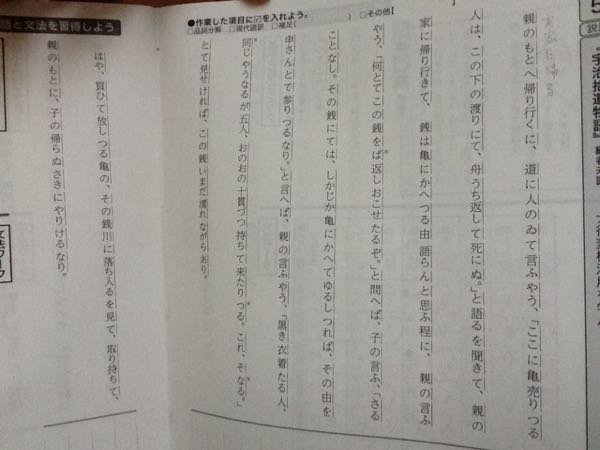 5
説話
『宇治拾遺物語』
編者未詳
実家に帰る
親のもとへ帰り行くに、道に人のゐて言ふやう、「ここに亀売りつる
人は、この下の渡りにて、舟うち返して死にぬ。」と語るを聞きて、親の
家に帰り行きて、銭は亀にかへつる由語らんと思ふ程に、親の言ふ
やう、「何とてこの銭をば返しおこせたるぞ。」と問へば、子の言ふ、「さる
ことなし。その銭にては、しかじか亀にかへてゆるしつれば、その由を
申さんとて参りつるなり。」と言へば、親の言ふやう、「黒き衣着たる人、
同じやうなるが五人、おのおの十貫づつ持ちて来たりつる。これ、そなる。」
とて見せければ、この銭いまだ濡れながらあり。
●作業した項目に☑を入れよう。
□品詞分解 □現代語訳 □補足( ) □その他【 】
と文法を習得しよう
はや、買ひて放しつる亀の、その銭川に落ち入るを見て、取り持ちて、
親のもとに、子の帰らぬさきにやりけるなり。
文法ワーク